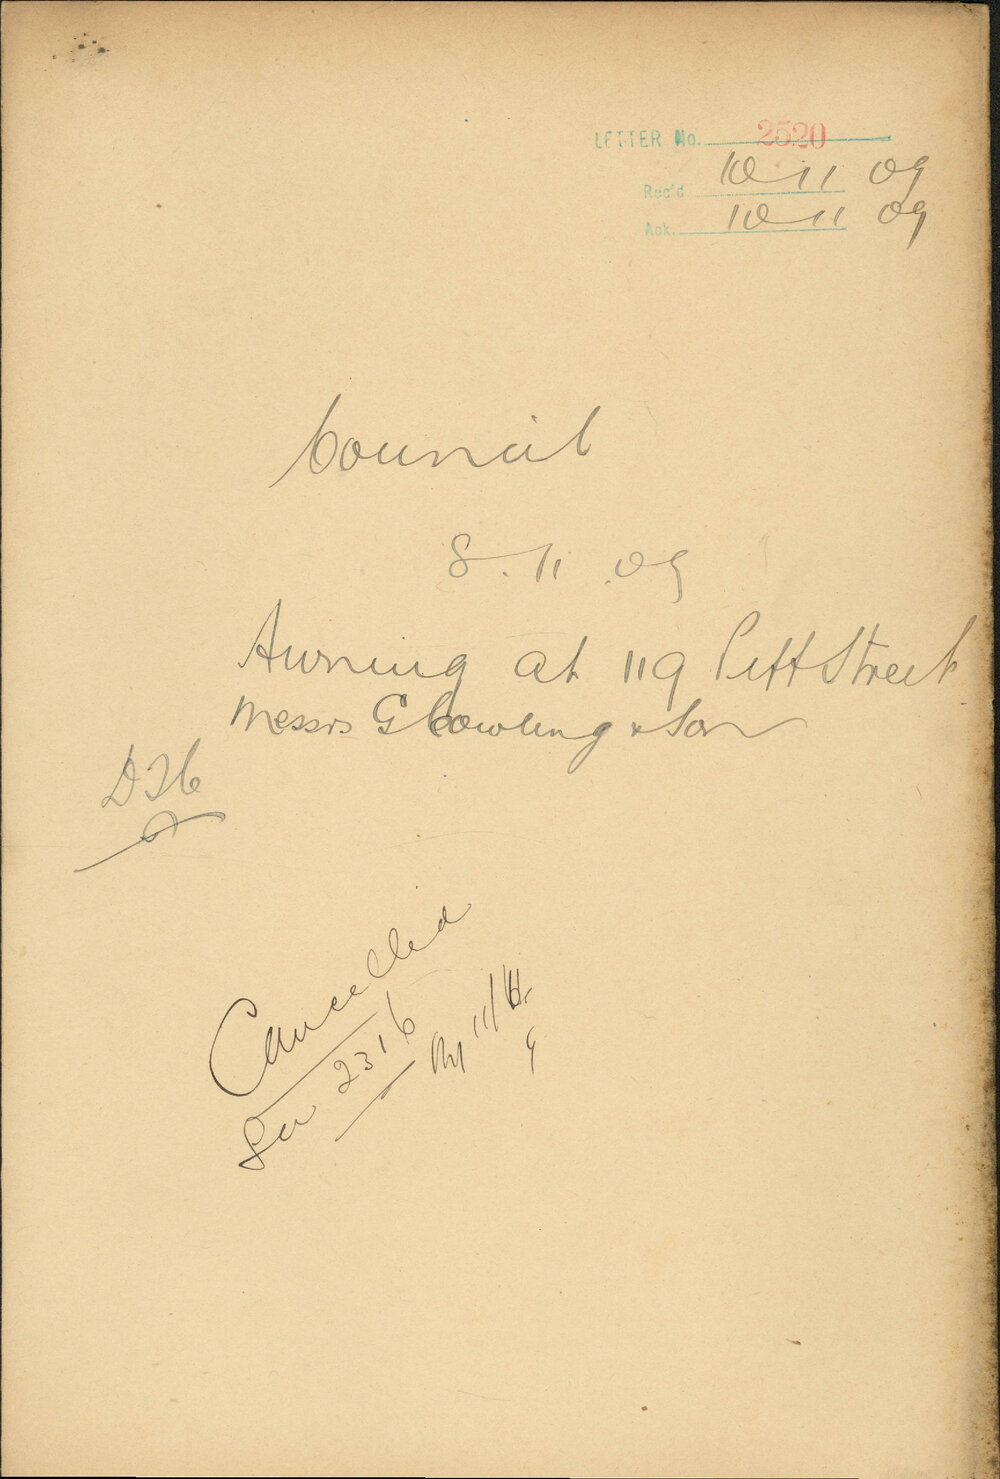 LETTER No. 2520
Rec'd 10 11 09
Ack. 10 11 09
Council
8.11.09
Awning at 119 Pitt Street
Messrs G Cowling & Son
Cancelled
See 2316
11/11
9